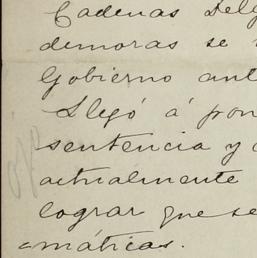 Cadenas Delg
demoras se
Gobierno ant
Llegó á pon
sentencia y
actualmente
lograr que se
máticas.